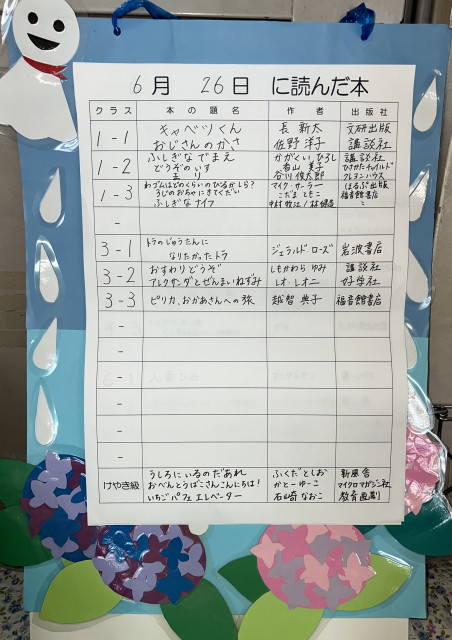 6月 26日 に読んだ本
クラス 本の題名 作者 出版社
1-1 キャベツくん 長 新太 文研出版
おじさんのかさ 佐野 洋子 講談社
1-2 ふしぎなでまえ かがくい ひろし 講談社
どうぞのいす 香山 美子 ひさかたチャイルド
王 谷川 俊太郎 クレヨンハウス
1-3 わゴムはどのくらいのびるかしら? マイク・サーラー ほるぷ出版
うしのおちゃにきてください こだま ともこ 福音館書店
ふしぎなナイフ 中村 牧江/林 健造 〃
3-1 トラのじゅうたんに
なりたかったトラ ジェラルド・ローズ 岩波書店
3-2 おすわりどうぞ しもかわら ゆみ 講談社
アレクサンダとぜんまいねずみ レオ・レオニ 好学社
3-3 ピリカ、おかあさんへの旅 越智 典子 福音館書店
-
-
-
-
-
-
けやき級 うしろにいるのだあれ ふくだとしお 新風舎
おべんとうばこさんこんにちは! かとーゆーこ マイクロマガジン社
いちごパフェエレベーター 石崎 なおこ 教育画劇